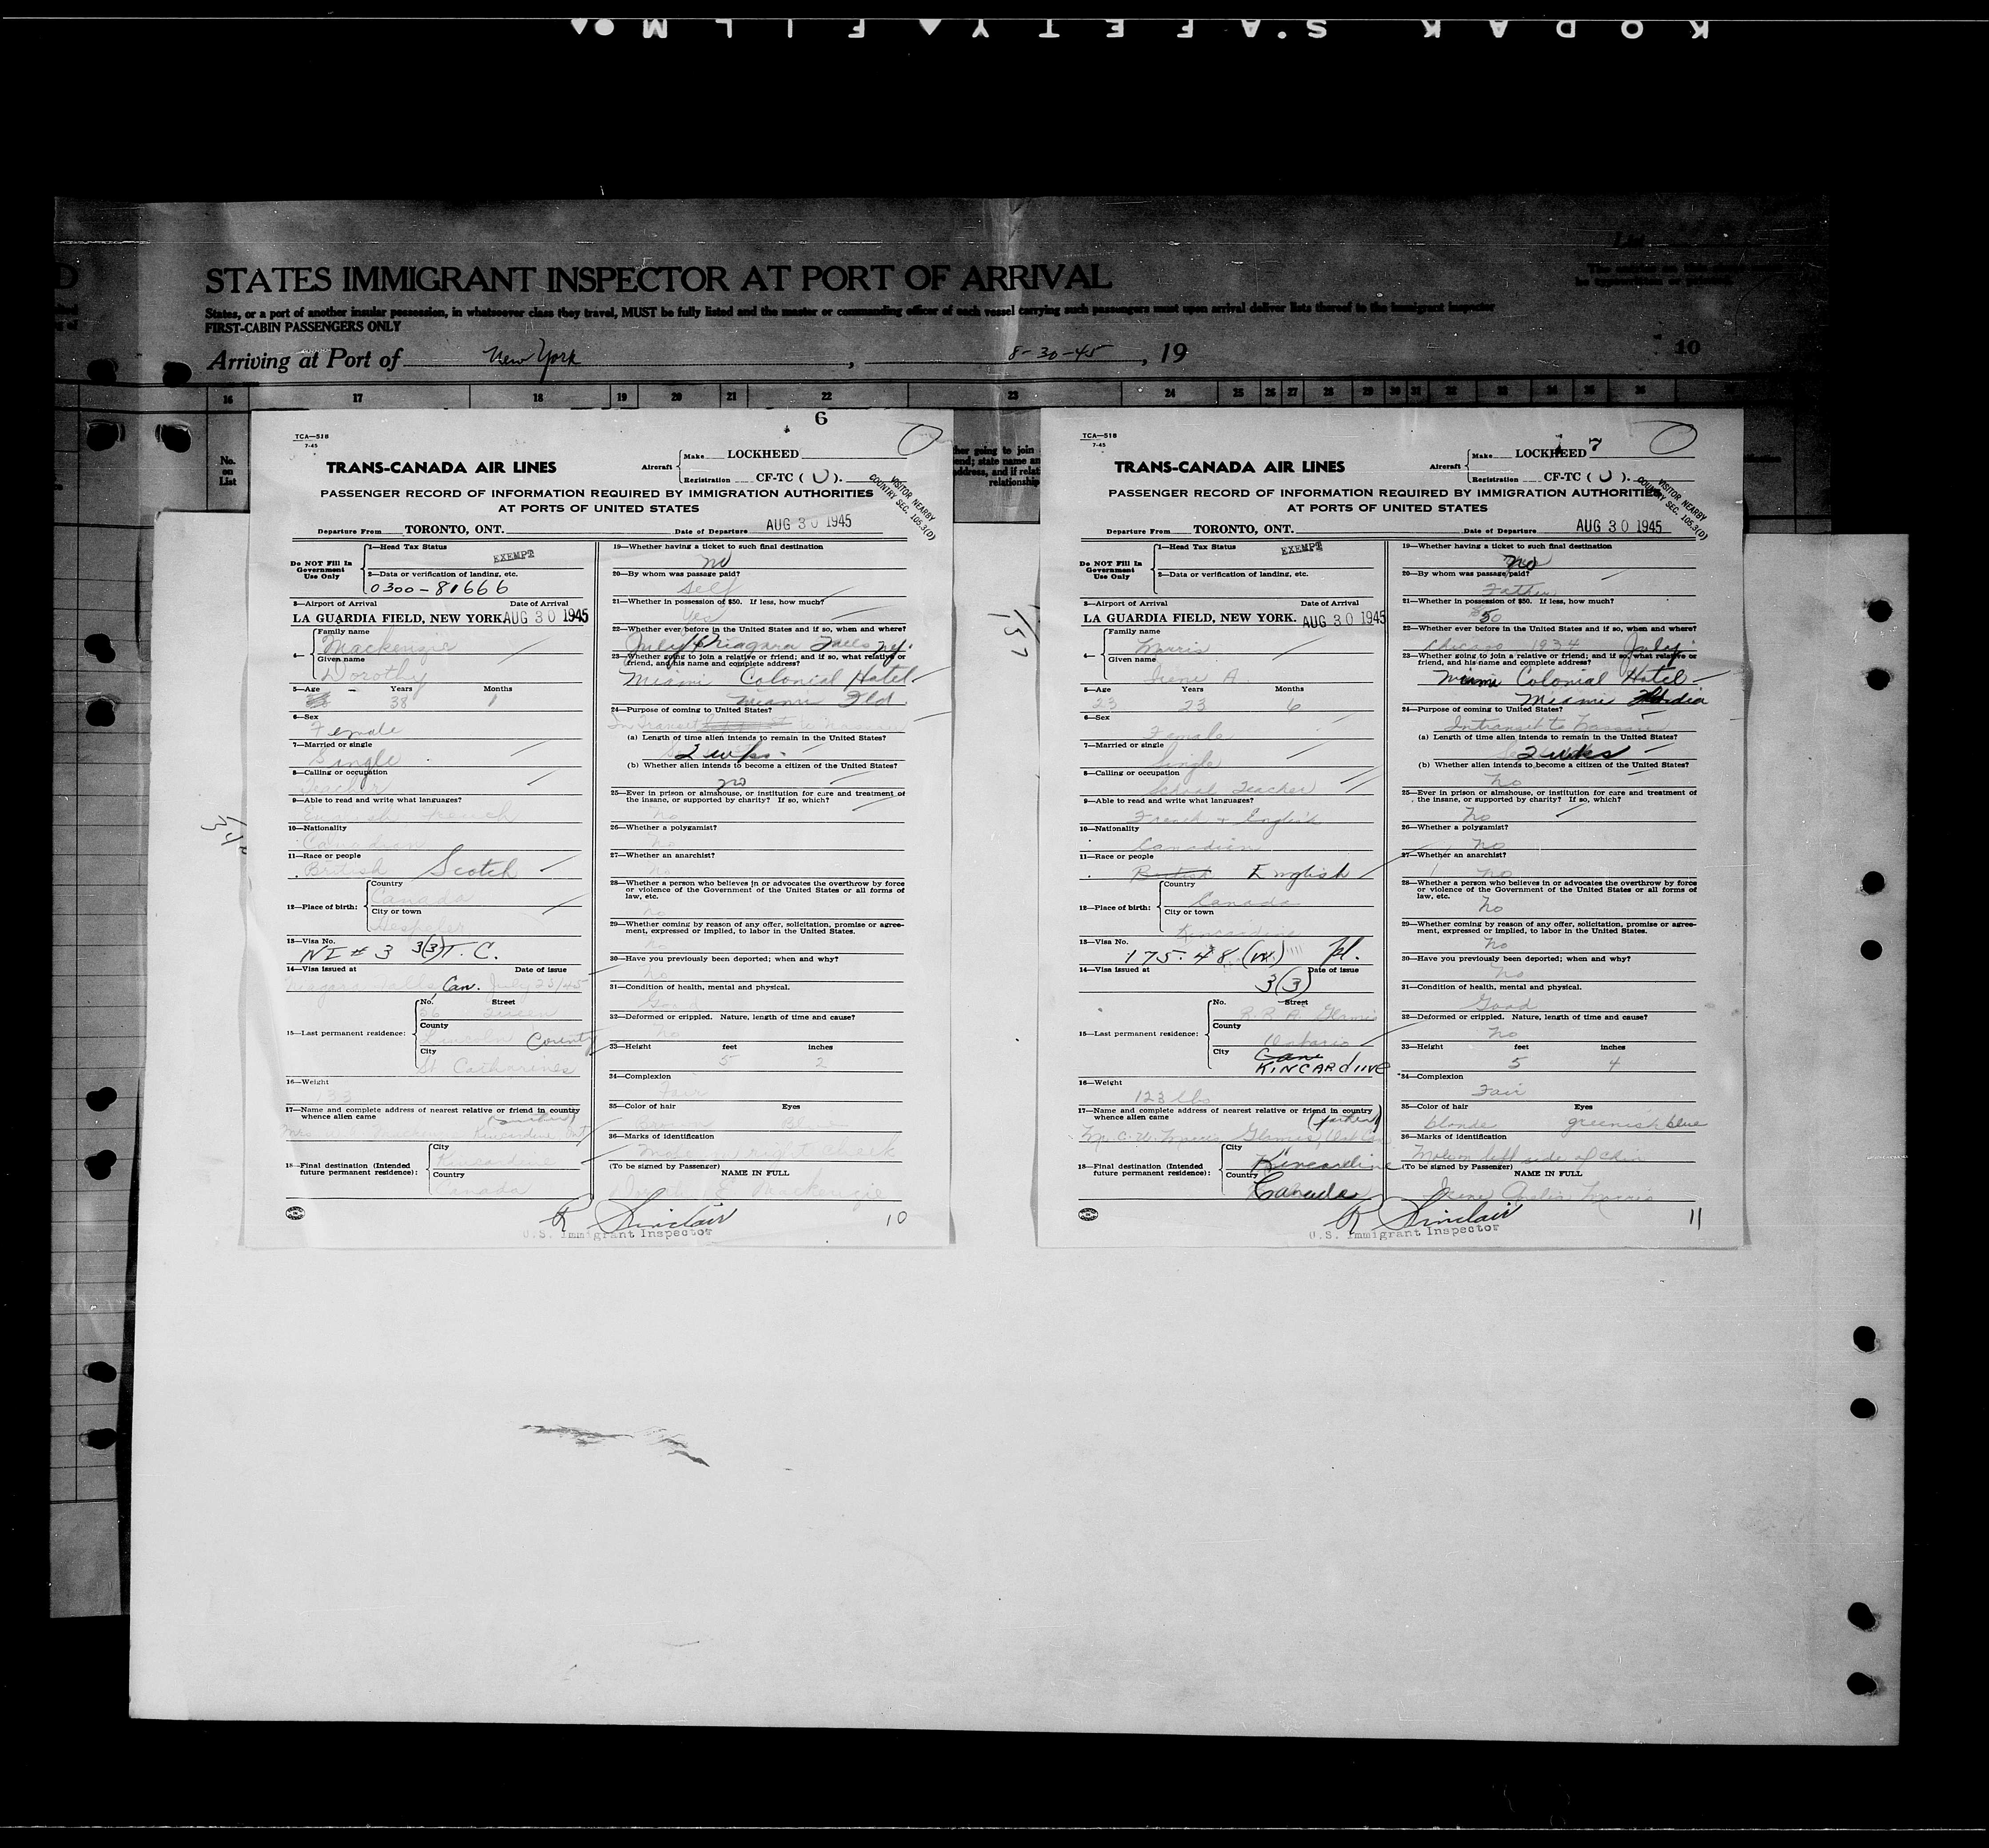 KODAK SAFETY FILM
STATES IMMIGRANT INSPECTOR AT PORT OF ARRIVAL
States, or a port of another insular possession, in whatsoever class they travel, MUST be fully listed and the master or commanding officer of each vessel carrying such passengers must upon arrival deliver lists thereof to the immigrant inspector
FIRST-CABIN PASSENGERS ONLY
Arriving at Port of New York, 8-30-45, 19
10
16 17 18 19 20 21 22 23 24 25 26 27 28 29 30 31 32 33 34 35 36
No.
on
List
6
TCA—518
7-45
TRANS-CANADA AIR LINES
Aircraft Make LOCKHEED
Registration CF-TC ( U ).
VISITOR NEARBY
COUNTRY SEC. 105.3(D)
PASSENGER RECORD OF INFORMATION REQUIRED BY IMMIGRATION AUTHORITIES
AT PORTS OF UNITED STATES
Departure From TORONTO, ONT. Date of Departure AUG 30 1945
Do NOT Fill In
Government
Use Only
1—Head Tax Status EXEMPT
2—Data or verification of landing, etc.
0300-81666
3—Airport of Arrival Date of Arrival
LA GUARDIA FIELD, NEW YORK. AUG 30 1945
4— Family name
Mackenzie
Given name
Dorothy
5—Age Years Months
38 1
6—Sex
Female
7—Married or single
Single
8—Calling or occupation
Teacher
9—Able to read and write what languages?
English French
10—Nationality
Canadian
11—Race or people
British Scotch
12—Place of birth: Country
Canada
City or town
Hespeler
13—Visa No.
NI # 3 3(3) T. C.
14—Visa issued at Date of issue
Niagara Falls Can. July 23/45
15—Last permanent residence: No. Street
36 Queen
County
Lincoln County
City
St Catharines
16—Weight
133
17—Name and complete address of nearest relative or friend in country
whence alien came
Kincardine Ont
18—Final destination (Intended
future permanent residence): City
Kincardine
Country
Canada
19—Whether having a ticket to such final destination
no
20—By whom was passage paid?
Self
21—Whether in possession of $50. If less, how much?
Yes
22—Whether ever before in the United States and if so, when and where?
July Niagara Falls NY.
23—Whether going to join a relative or friend; and if so, what relative or
friend, and his name and complete address?
Miami Colonial Hotel
Miami Fld
24—Purpose of coming to United States?
In Transit
(a) Length of time alien intends to remain in the United States?
2 wks.
(b) Whether alien intends to become a citizen of the United States?
no
25—Ever in prison or almshouse, or institution for care and treatment of
the insane, or supported by charity? If so, which?
No
26—Whether a polygamist?
No
27—Whether an anarchist?
No
28—Whether a person who believes in or advocates the overthrow by force
or violence of the Government of the United States or all forms of
law, etc.
No
29—Whether coming by reason of any offer, solicitation, promise or agree-
ment, expressed or implied, to labor in the United States.
No
30—Have you previously been deported; when and why?
No
31—Condition of health, mental and physical.
Good
32—Deformed or crippled. Nature, length of time and cause?
No
33—Height feet inches
5 2
34—Complexion
Fair
35—Color of hair Eyes
Brown Blue
36—Marks of identification
Mole on right cheek
(To be signed by Passenger) NAME IN FULL
Dorothy E Mackenzie
R Sinclair
U.S. Immigrant Inspector
10
7
TCA—518
7-45
TRANS-CANADA AIR LINES
Aircraft Make LOCKHEED
Registration CF-TC ( U ).
VISITOR NEARBY
COUNTRY SEC. 105.3(D)
PASSENGER RECORD OF INFORMATION REQUIRED BY IMMIGRATION AUTHORITIES
AT PORTS OF UNITED STATES
Departure From TORONTO, ONT. Date of Departure AUG 30 1945
Do NOT Fill In
Government
Use Only
1—Head Tax Status EXEMPT
2—Data or verification of landing, etc.
3—Airport of Arrival Date of Arrival
LA GUARDIA FIELD, NEW YORK. AUG 30 1945
4— Family name
Morris
Given name
Irene A.
5—Age Years Months
23 23 6
6—Sex
Female
7—Married or single
Single
8—Calling or occupation
School Teacher
9—Able to read and write what languages?
French + English
10—Nationality
Canadian
11—Race or people
British English
12—Place of birth: Country
Canada
City or town
Kincardine
13—Visa No.
175.48 (W)
14—Visa issued at Date of issue
3(3)
15—Last permanent residence: No. Street
County
Ontario
City
KINCARdINE
16—Weight
123 lbs
17—Name and complete address of nearest relative or friend in country
whence alien came
(father)
18—Final destination (Intended
future permanent residence): City
Kincardine
Country
Canada
19—Whether having a ticket to such final destination
no
20—By whom was passage paid?
Father
21—Whether in possession of $50. If less, how much?
$50
22—Whether ever before in the United States and if so, when and where?
Chicago 1934 July
23—Whether going to join a relative or friend; and if so, what relative or
friend, and his name and complete address?
Miami Colonial Hotel
Miami
24—Purpose of coming to United States?
Intransit to Nassau
(a) Length of time alien intends to remain in the United States?
2 wks
(b) Whether alien intends to become a citizen of the United States?
No
25—Ever in prison or almshouse, or institution for care and treatment of
the insane, or supported by charity? If so, which?
No
26—Whether a polygamist?
No
27—Whether an anarchist?
No
28—Whether a person who believes in or advocates the overthrow by force
or violence of the Government of the United States or all forms of
law, etc.
No
29—Whether coming by reason of any offer, solicitation, promise or agree-
ment, expressed or implied, to labor in the United States.
No
30—Have you previously been deported; when and why?
No
31—Condition of health, mental and physical.
Good
32—Deformed or crippled. Nature, length of time and cause?
No
33—Height feet inches
5 4
34—Complexion
Fair
35—Color of hair Eyes
blonde greenish blue
36—Marks of identification
Mole on left side of chin
(To be signed by Passenger) NAME IN FULL
Irene Morris
R Sinclair
U.S. Immigrant Inspector
11